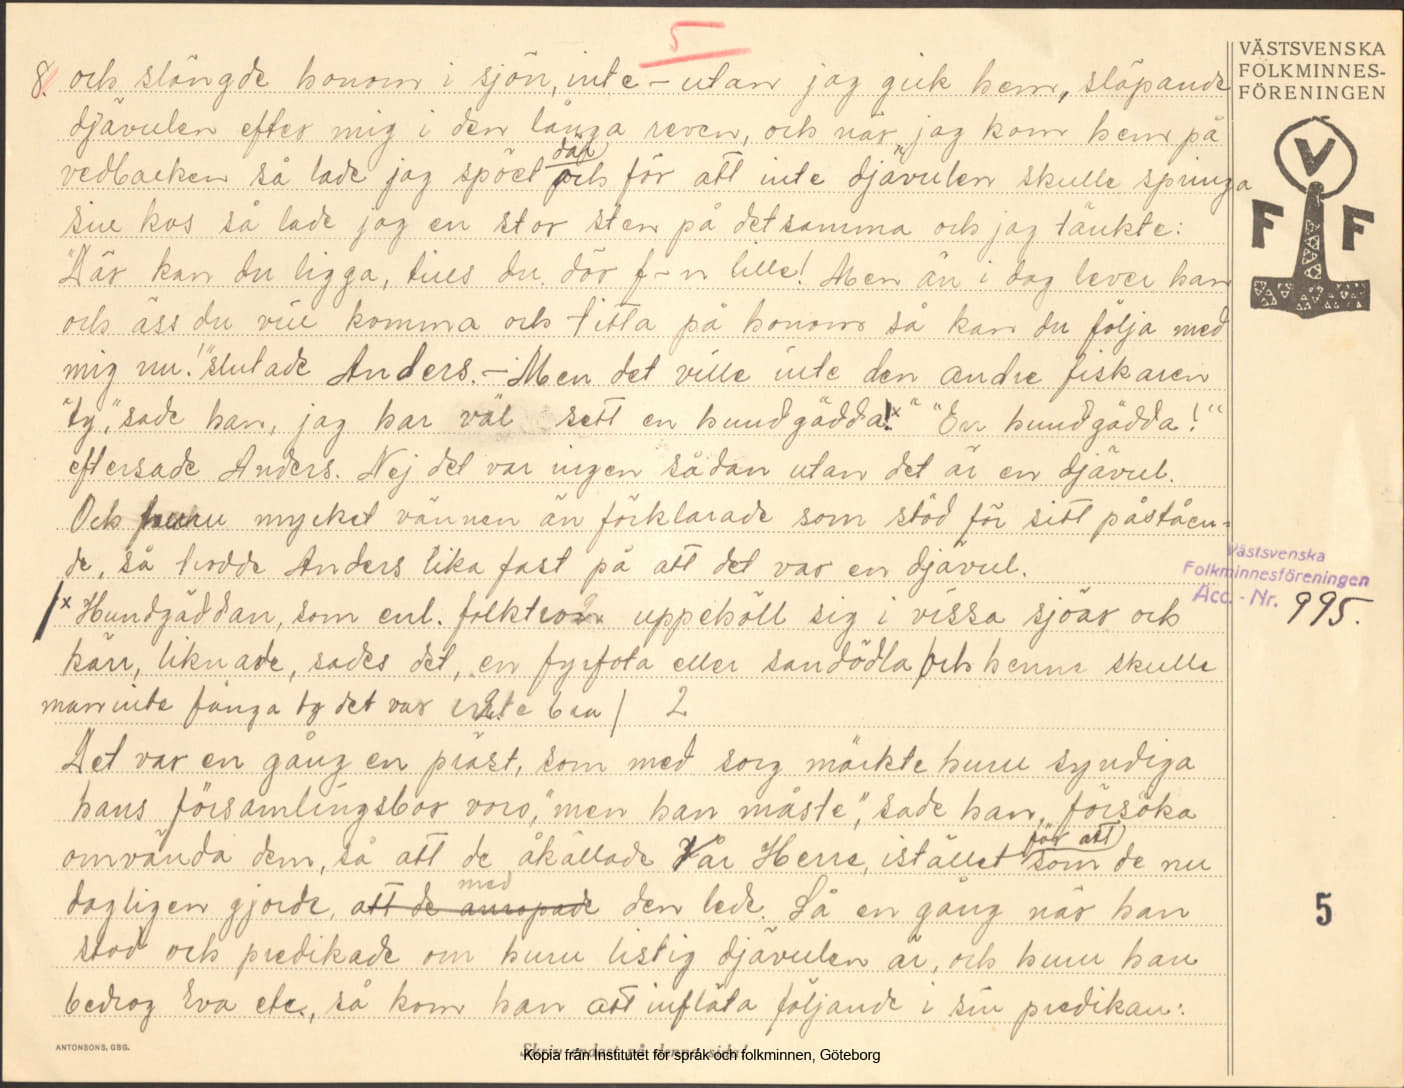 5
VÄSTSVENSKA
FOLKMINNES-
FÖRENINGEN
8. och slängde honom i sjön, inte – utan jag gick hem, släpande
djävulen efter mig i den långa reven, och när jag kom hem på
vedbacken så lade jag spöet där och för att inte djävulen skulle springa
sin kos så lade jag en stor sten på detsamma och jag tänkte:
"Där kan du ligga, tills du dör f–n lille! Men än i dag lever han
och äss du vill komma och titta på honom så kan du följa med
mig nu!" slutade Anders. – Men det ville inte den andre fiskaren
"ty," sade han, jag har väl sett en hundgädda!x" "En hundgädda!"
eftersade Anders. Nej det var ingen sådan utan det är en djävul.
Och huru mycket vännen än förklarade som stöd för sitt påståen-
de, så trodde Anders lika fast på att det var en djävul.
/x Hundgäddan, som enl. folktron uppehöll sig i vissa sjöar och
kärr, liknade, sades det, en fyrfota eller sandödla och henne skulle
man inte fånga ty det var inte bra / 2
Det var en gång en präst, som med sorg märkte huru syndiga
hans församlingsbor voro, "men han måste," sade han, försöka
omvända dem, så att de åkallade Vår Herre, istället för att som de nu
dagligen gjorde, att de anropade med den lede. Så en gång när han
stod och predikade om huru listig djävulen är, och huru han
bedrog Eva etc., så kom han att infläta följande i sin predikan:
V
F F
Västsvenska
Folkminnesföreningen
Acc. - Nr. 995.
5
ANTONSONS, GBG.
Skriv endast på denna sida!
Kopia från Institutet för språk och folkminnen, Göteborg